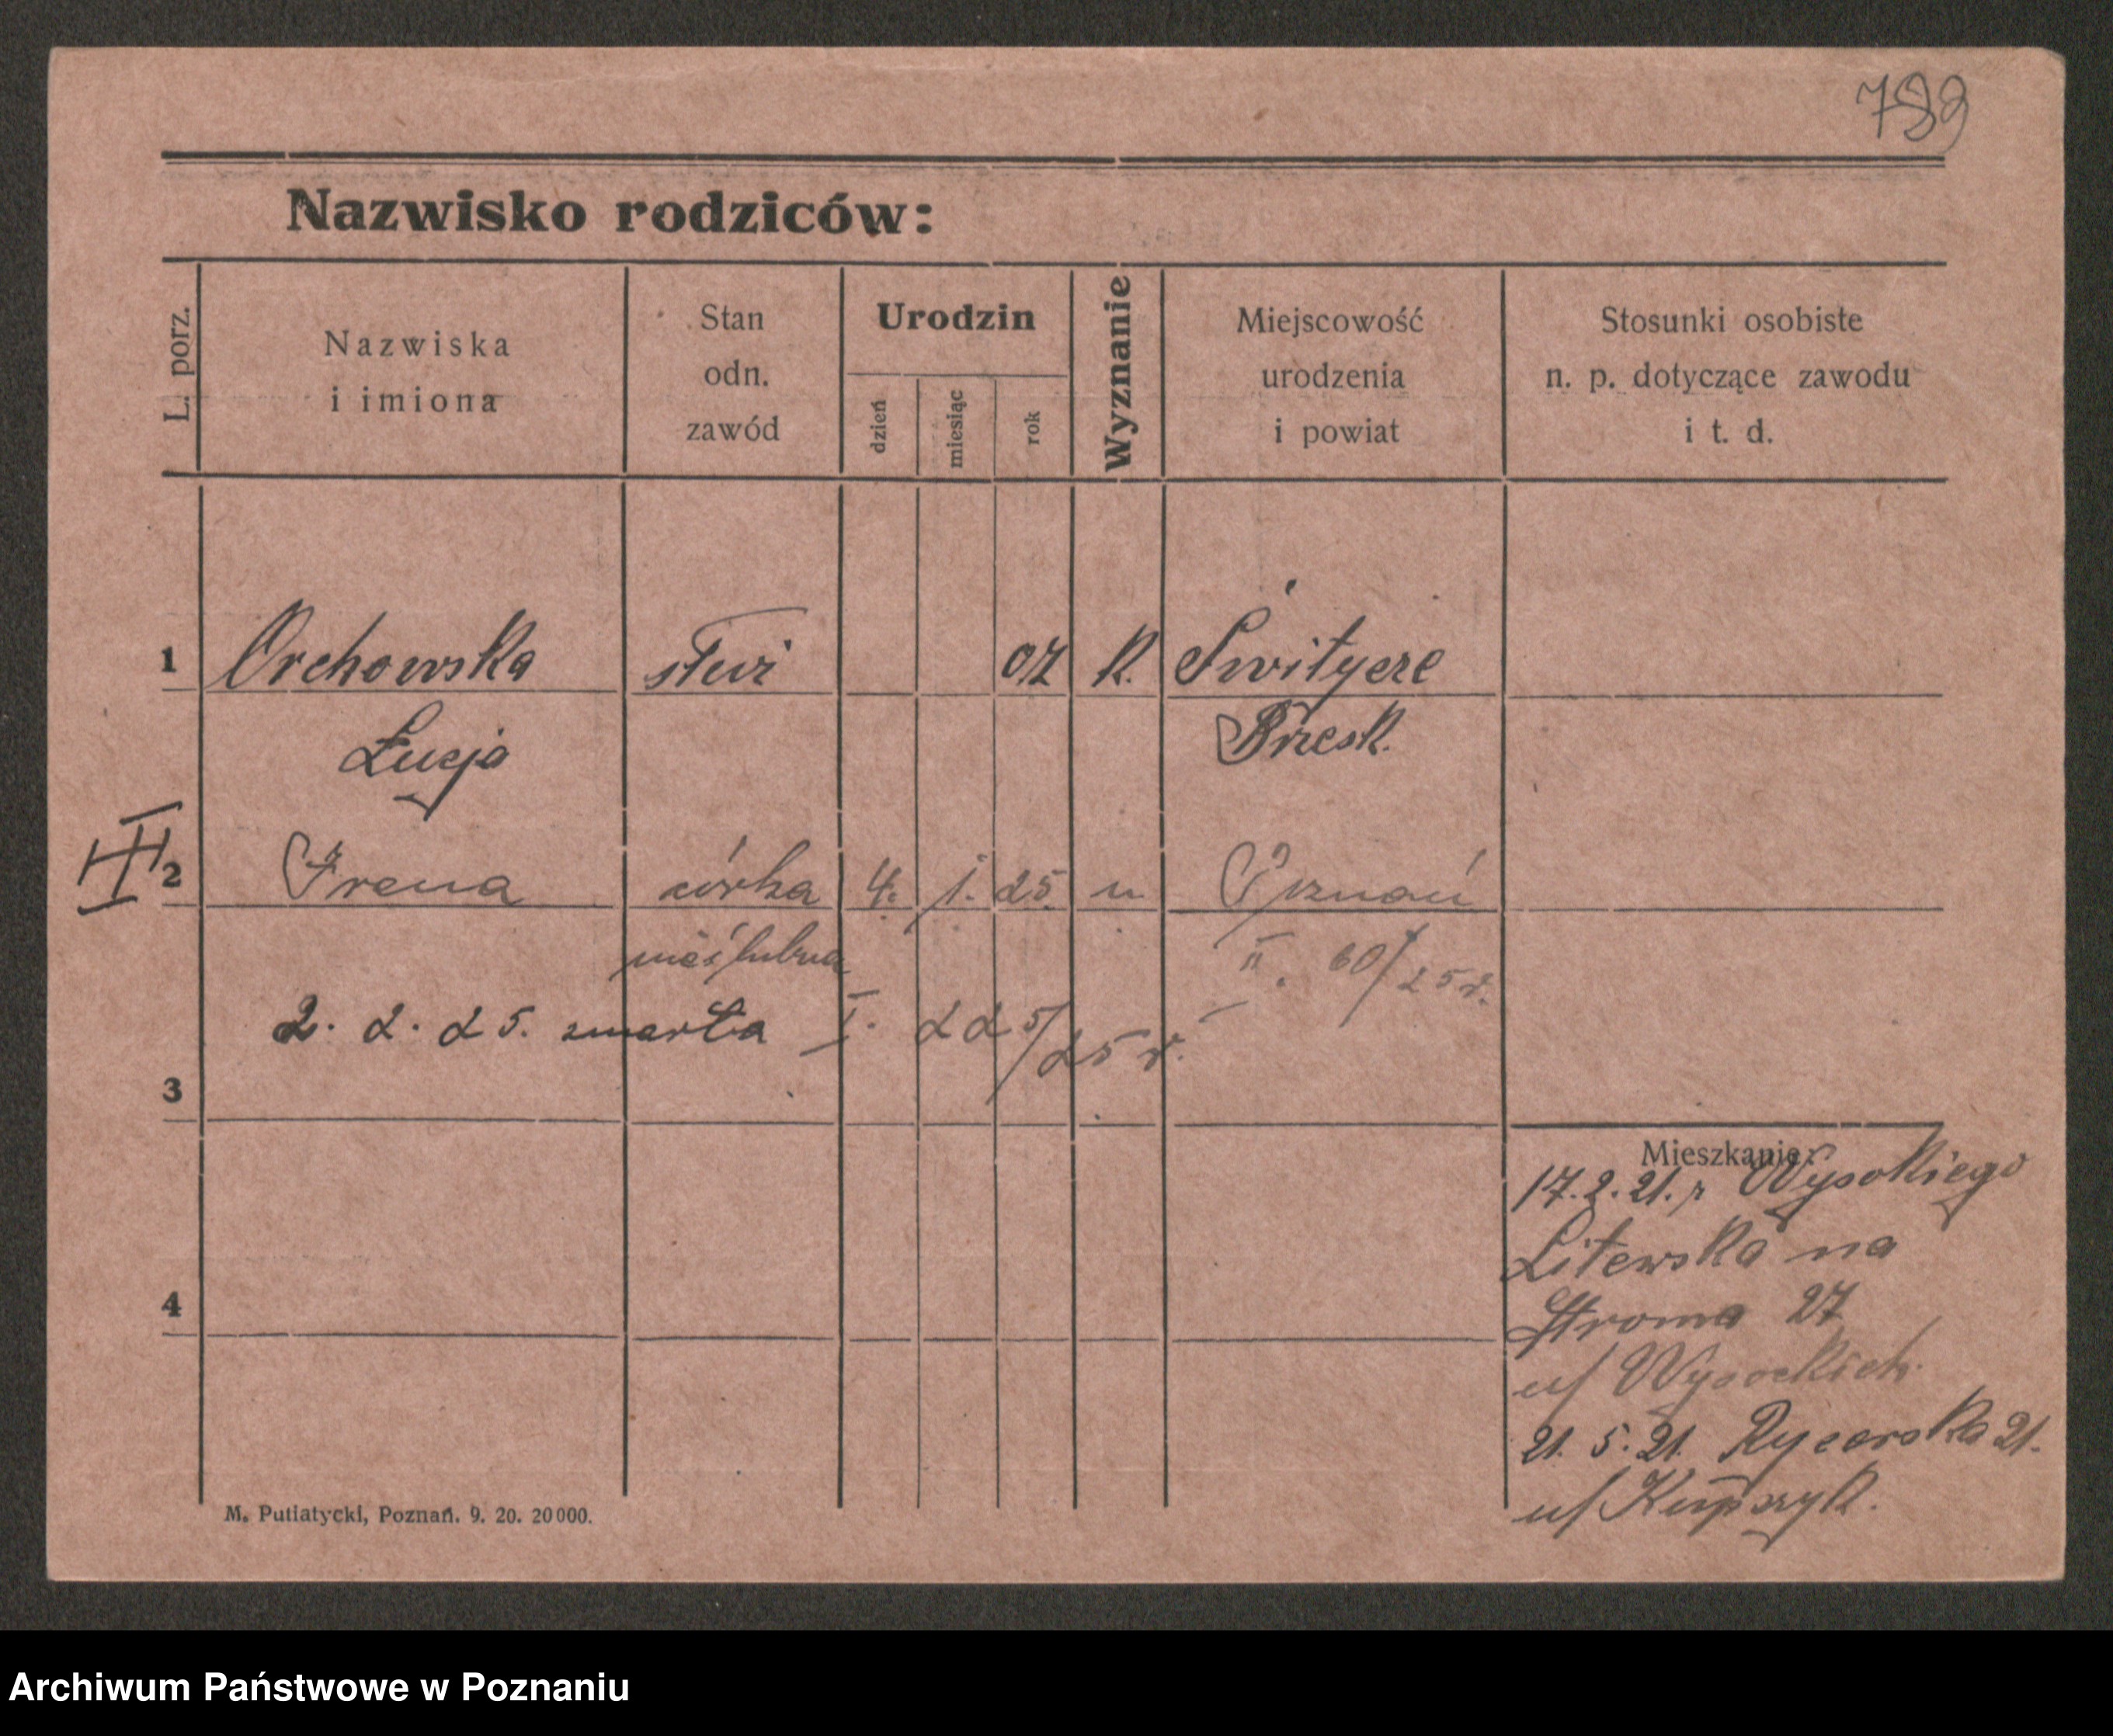 789
Nazwisko rodziców:
L. porz.
Nazwiska
i imiona
Stan
odn.
zawód
Urodzin
dzień
miesiąc
rok
Wyznanie
Miejscowość
urodzenia
i powiat
Stosunki osobiste
n. p. dotyczące zawodu
i t. d.
1 Orchowska 07 k.
Łucja
III
2 Irena córka 4. 1. 25. Poznań
nieślubna II. 60/25 r.
2. 2. 25. zmarła I. 225/25 r.
3
Mieszkanie:
17.2.21. r Wysokiego
Litewska na
4
Stroma 27
u/ Wysockich
21. 5. 21. Rycerska 21.
u/ Kupczyk.
M. Putiatycki, Poznań. 9. 20. 20000.
Archiwum Państwowe w Poznaniu